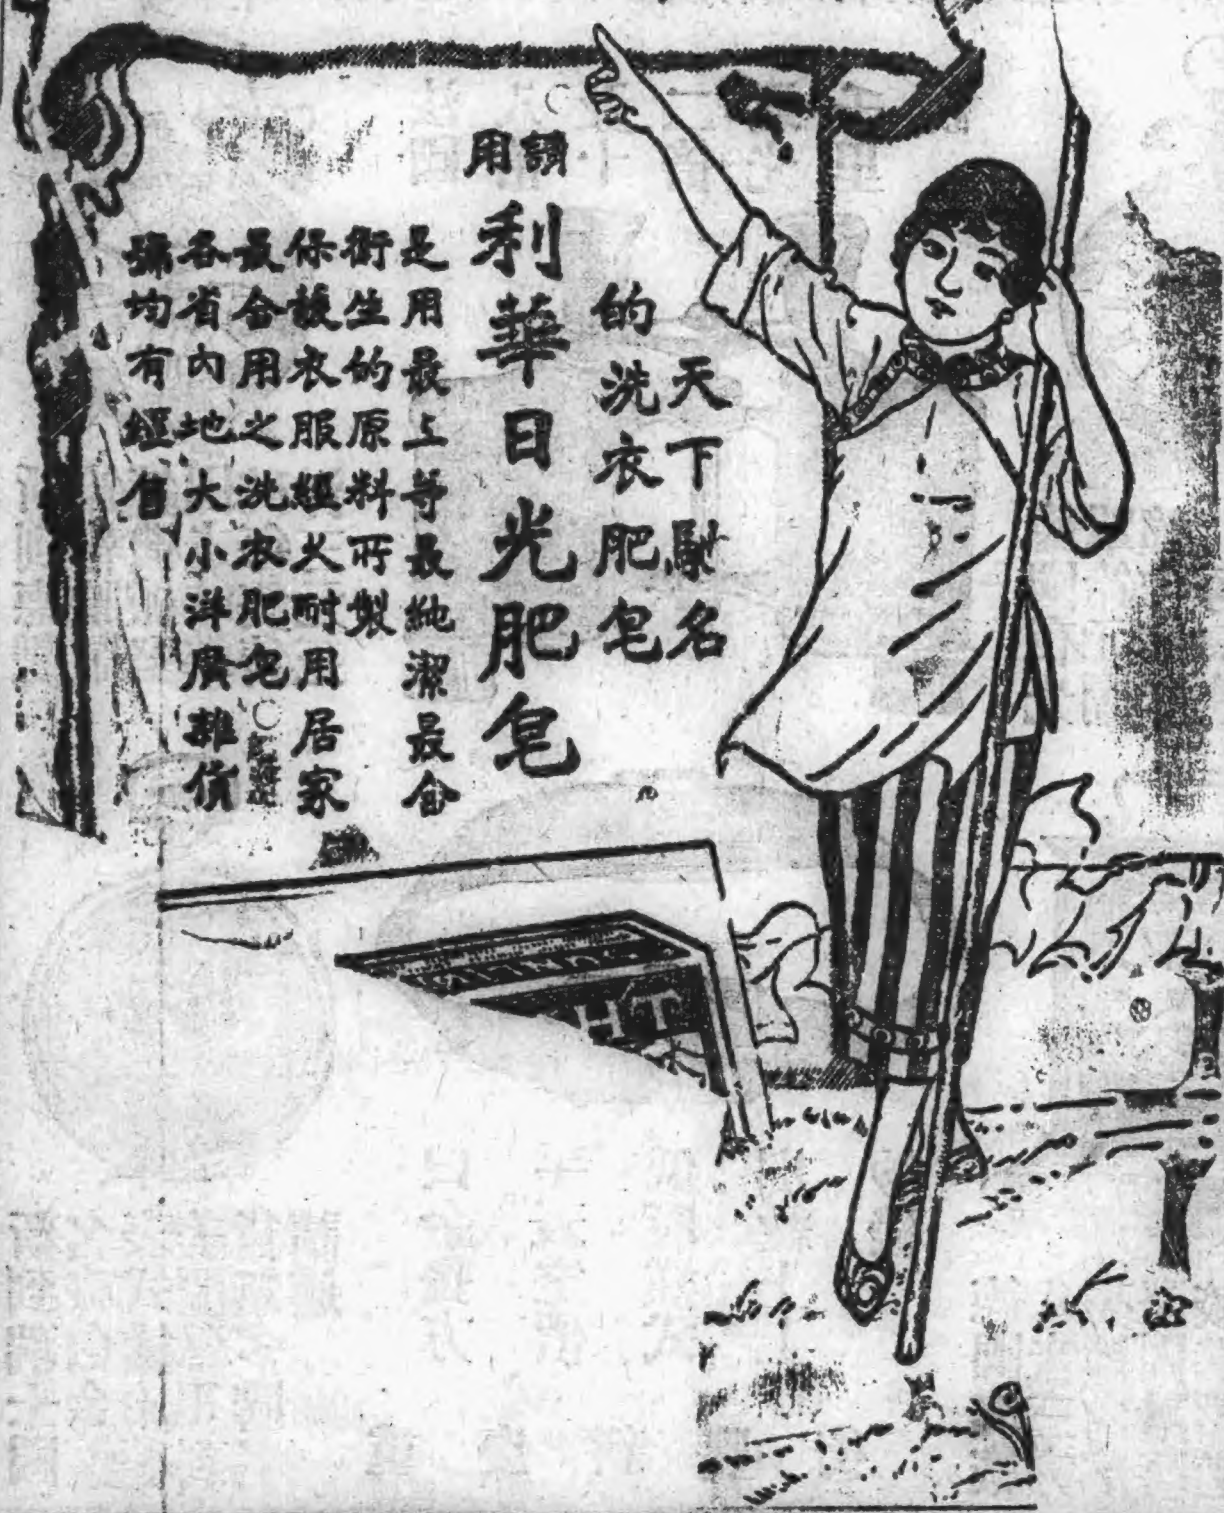 天下馳名
的洗衣肥皂
請用
利華日光肥皂
是用最上等最純潔最合
衛生的原料所製
保護衣服經久耐用居家
最合用之洗衣肥皂
各省內地大小洋廣雜貨
號均有經售
SUNLIG
GHT